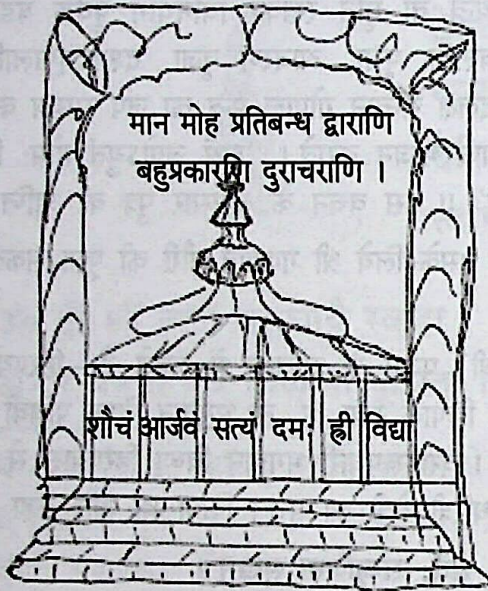 मान मोह प्रतिबन्ध द्वाराणि
बहुप्रकाराणि दुराचराणि ।
शौचं आर्जवं सत्यं दमः ह्री विद्या